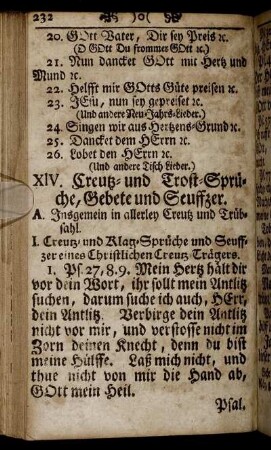 232 )o(
20. GOtt Vater, Dir sey Preis ꝛc.
(O GOtt Du frommer GOtt ꝛc.)
21. Nun dancket GOtt mit Hertz und
Mund ꝛc.
22. Helfft mir GOtts Güte preisen ꝛc.
23. JEſu, nun sey gepreiset ꝛc.
(Und andere Neu-Jahrs-Lieder.)
24. Singen wir aus Hertzens-Grund ꝛc.
25. Dancket dem HErrn ꝛc.
26. Lobet den HErrn ꝛc.
(Und andere Tisch Lieder.)
XIV. Creutz- und Trost-Sprü-
che, Gebete und Seuffzer.
A. Insgemein in allerley Creutz und Trüb-
sahl.
I. Creutz- und Klag-Sprüche und Seuff-
zer eines Christlichen Creutz-Trägers.
1. Ps. 27, 8. 9. Mein Hertz hält dir
vor dein Wort, ihr sollt mein Antlitz
suchen, darum suche ich auch, HErr,
dein Antlitz. Verbirge dein Antlitz
nicht vor mir, und verstosse nicht im
Zorn deinen Knecht, denn du bist
meine Hülffe. Laß mich nicht, und
thue nicht von mir die Hand ab,
GOtt mein Heil.
Psal.